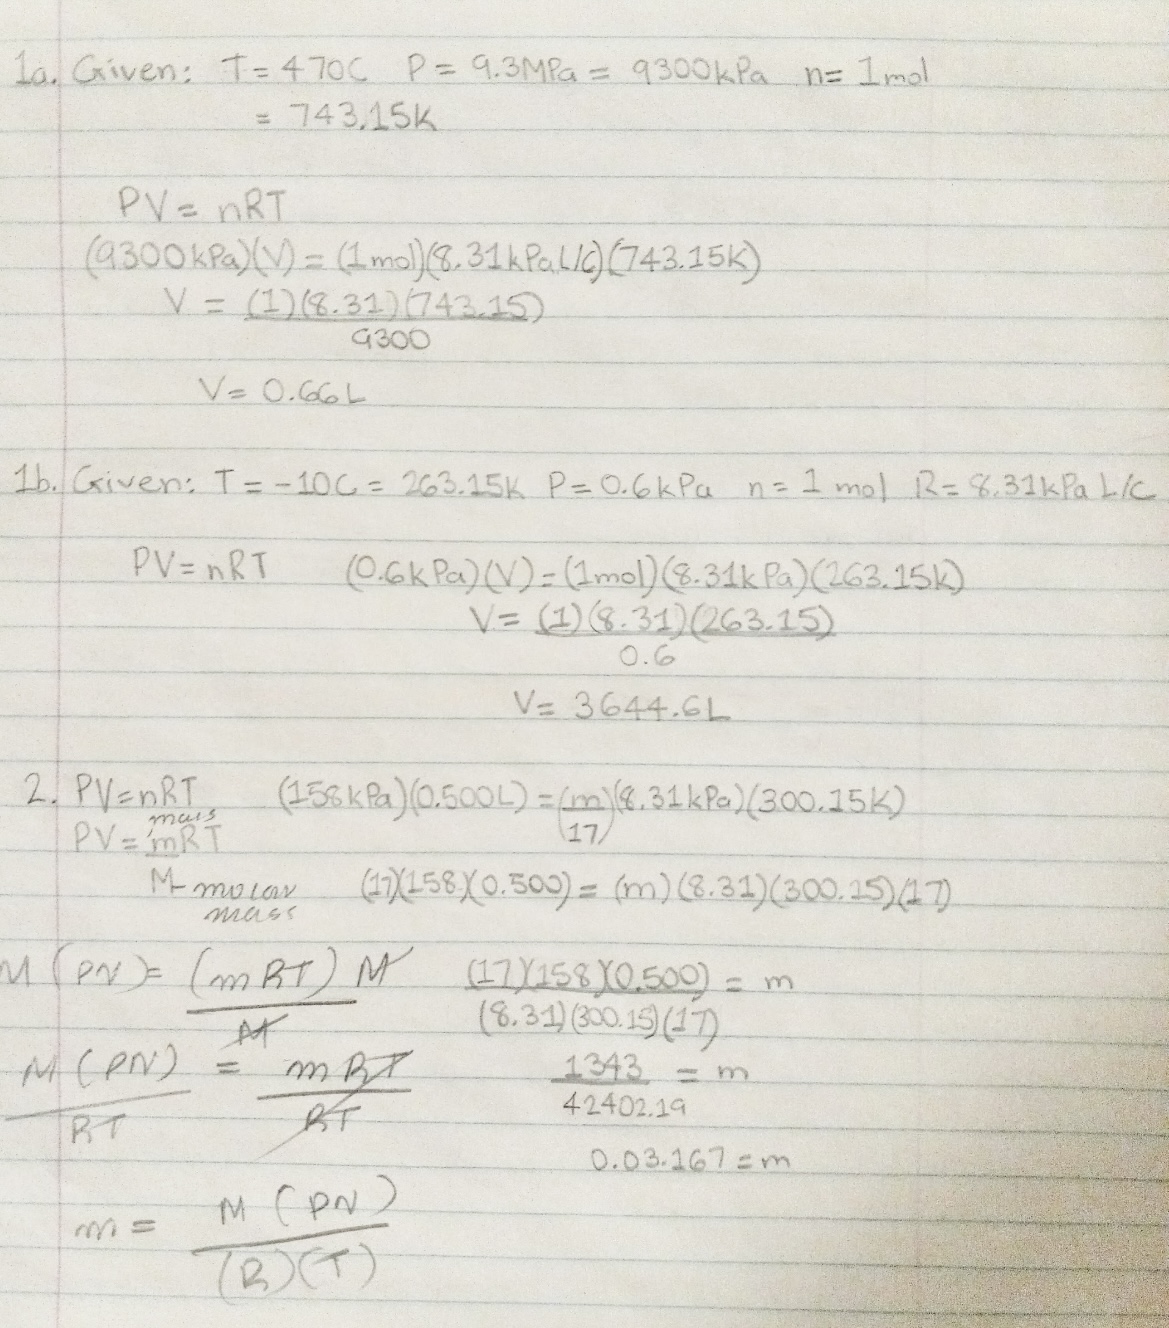 1a. Given: T = 470C P = 9.3MPa = 9300kPa n = 1mol
= 743.15K
PV = nRT
(9300kPa)(V) = (1mol)(8.31kPaL/C)(743.15K)
V = (1)(8.31)(743.15)
9300
V = 0.66L
1b. Given: T = -10C = 263.15K P = 0.6kPa n = 1 mol R = 8.31kPa L/C
PV = nRT (0.6kPa)(V) = (1mol)(8.31kPa)(263.15K)
V = (1)(8.31)(263.15)
0.6
V = 3644.6L
2. PV = nRT (158kPa)(0.500L) = (m)(8.31kPa)(300.15K)
mass 17
PV = mRT
M molar (17)(158)(0.500) = (m)(8.31)(300.15)(17)
mass
M(PV) = (mRT) M (17)(158)(0.500) = m
M (8.31)(300.15)(17)
M(PV) = mRT 1343 = m
RT RT 42402.19
0.03.167 = m
m = M(PV)
(R)(T)